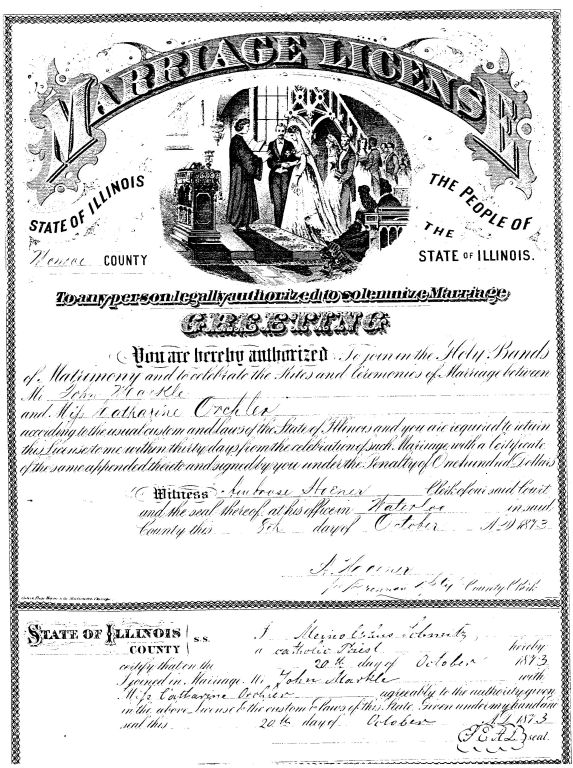 MARRIAGE LICENSE
STATE OF ILLINOIS
Monroe COUNTY
THE PEOPLE OF
THE
STATE OF ILLINOIS.
To any person legally authorized to solemnize Marriage
GREETING
You are hereby authorized To join in the Holy Bands
of Matrimony and to celebrate the Rites and Ceremonies of Marriage between
Mr John Markle
and Miss Catharine Oechler
according to the usual custom and laws of the State of Illinois and you are required to return
this License to me within thirty days from the celebration of such Marriage with a Certificate
of the same appended thereto and signed by you under the Penalty of One hundred Dollars
Witness Ambrose Hoener Clerk of our said Court
and the seal thereof at his office in Waterloo in said
County this 8th day of October A.D. 1873
A. Hoener
County Clerk
STATE OF ILLINOIS
COUNTY
S.S.
I
a catholic Priest hereby
certify that on the 20th day of October 1873
I joined in Marriage Mr John Markle with
Miss Catharine Oechler agreeably to the authority given
in the above License & the custom & laws of this State. Given under my hand and
seal this 20th day of October A.D. 1873
SEAL seal.